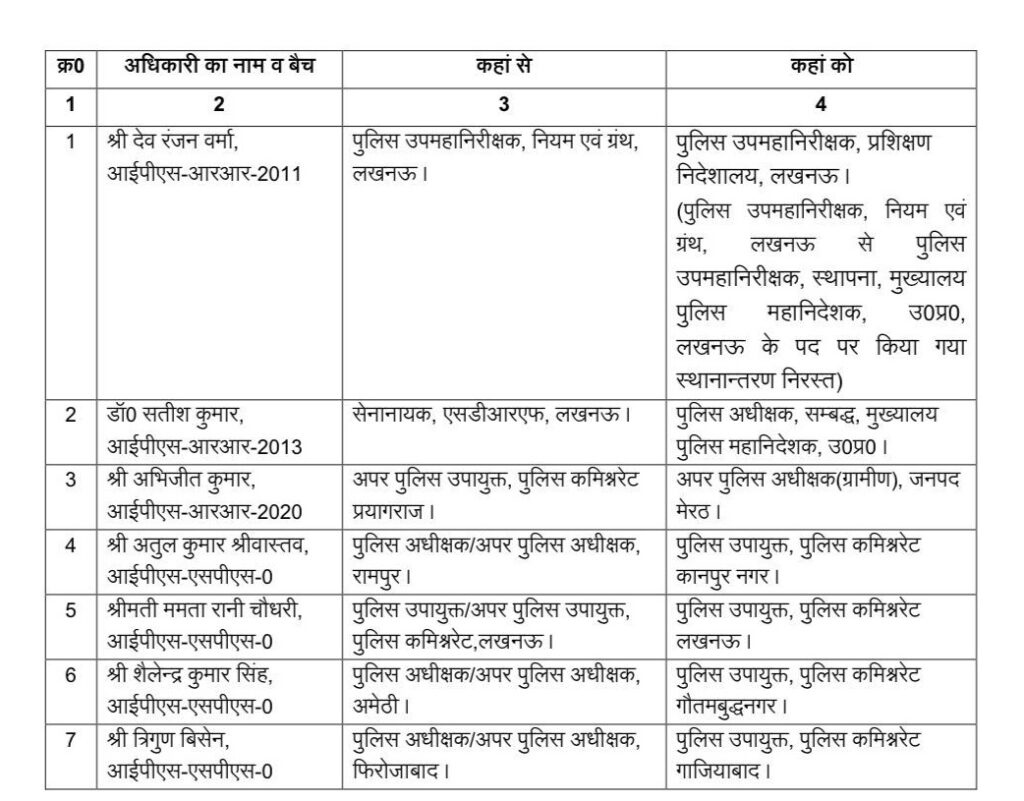 क्र0 अधिकारी का नाम व बैच कहां से कहां को
1 2 3 4
1 श्री देव रंजन वर्मा, पुलिस उपमहानिरीक्षक, नियम एवं ग्रंथ, पुलिस उपमहानिरीक्षक, प्रशिक्षण
आईपीएस-आरआर-2011 लखनऊ। निदेशालय, लखनऊ।
(पुलिस उपमहानिरीक्षक, नियम एवं
ग्रंथ, लखनऊ से पुलिस
उपमहानिरीक्षक, स्थापना, मुख्यालय
पुलिस महानिदेशक, उ0प्र0,
लखनऊ के पद पर किया गया
स्थानान्तरण निरस्त)
2 डॉ0 सतीश कुमार, सेनानायक, एसडीआरएफ, लखनऊ। पुलिस अधीक्षक, सम्बद्ध, मुख्यालय
आईपीएस-आरआर-2013 पुलिस महानिदेशक, उ0प्र0।
3 श्री अभिजीत कुमार, अपर पुलिस उपायुक्त, पुलिस कमिश्नरेट अपर पुलिस अधीक्षक(ग्रामीण), जनपद
आईपीएस-आरआर-2020 प्रयागराज। मेरठ।
4 श्री अतुल कुमार श्रीवास्तव, पुलिस अधीक्षक/अपर पुलिस अधीक्षक, पुलिस उपायुक्त, पुलिस कमिश्नरेट
आईपीएस-एसपीएस-0 रामपुर। कानपुर नगर।
5 श्रीमती ममता रानी चौधरी, पुलिस उपायुक्त/अपर पुलिस उपायुक्त, पुलिस उपायुक्त, पुलिस कमिश्नरेट
आईपीएस-एसपीएस-0 पुलिस कमिश्नरेट,लखनऊ। लखनऊ।
6 श्री शैलेन्द्र कुमार सिंह, पुलिस अधीक्षक/अपर पुलिस अधीक्षक, पुलिस उपायुक्त, पुलिस कमिश्नरेट
आईपीएस-एसपीएस-0 अमेठी। गौतमबुद्धनगर।
7 श्री त्रिगुण बिसेन, पुलिस अधीक्षक/अपर पुलिस अधीक्षक, पुलिस उपायुक्त, पुलिस कमिश्नरेट
आईपीएस-एसपीएस-0 फिरोजाबाद। गाजियाबाद।